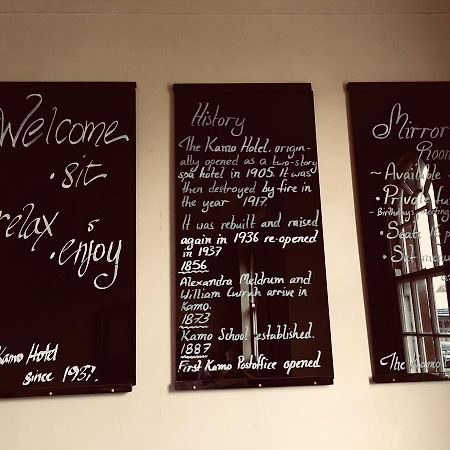 Welcome
• sit
relax
• enjoy
Kamo Hotel
since 1937.
History
The Kamo Hotel, origin-
ally opened as a two-story
spa hotel in 1905. It was
then destroyed by fire in
the year 1917.
It was rebuilt and raised
again in 1936 re-opened
in 1937
1856
Alexandra Meldrum and
William arrive in
Kamo.
1873
Kamo School established.
1887
First Kamo Postoffice opened
Mirror
Room
~ Available
• Private
- Birthdays
• Seats
• Set menu
The Kamo